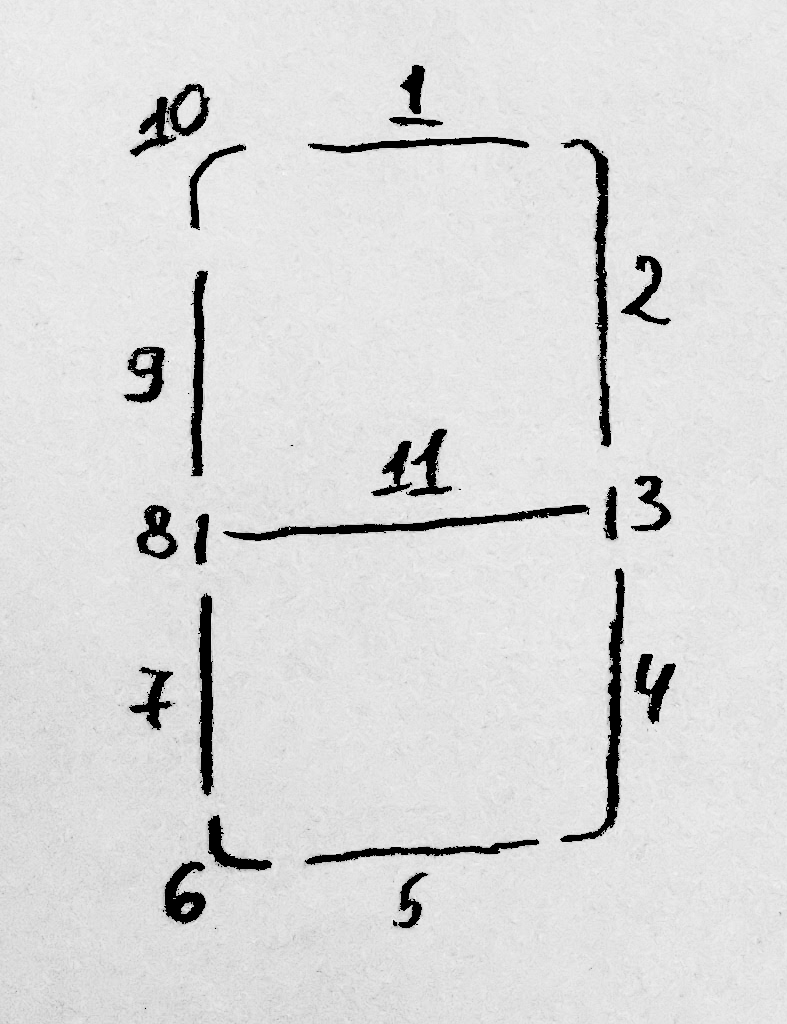 10 1
2
9
11
8 3
7 4
6 5